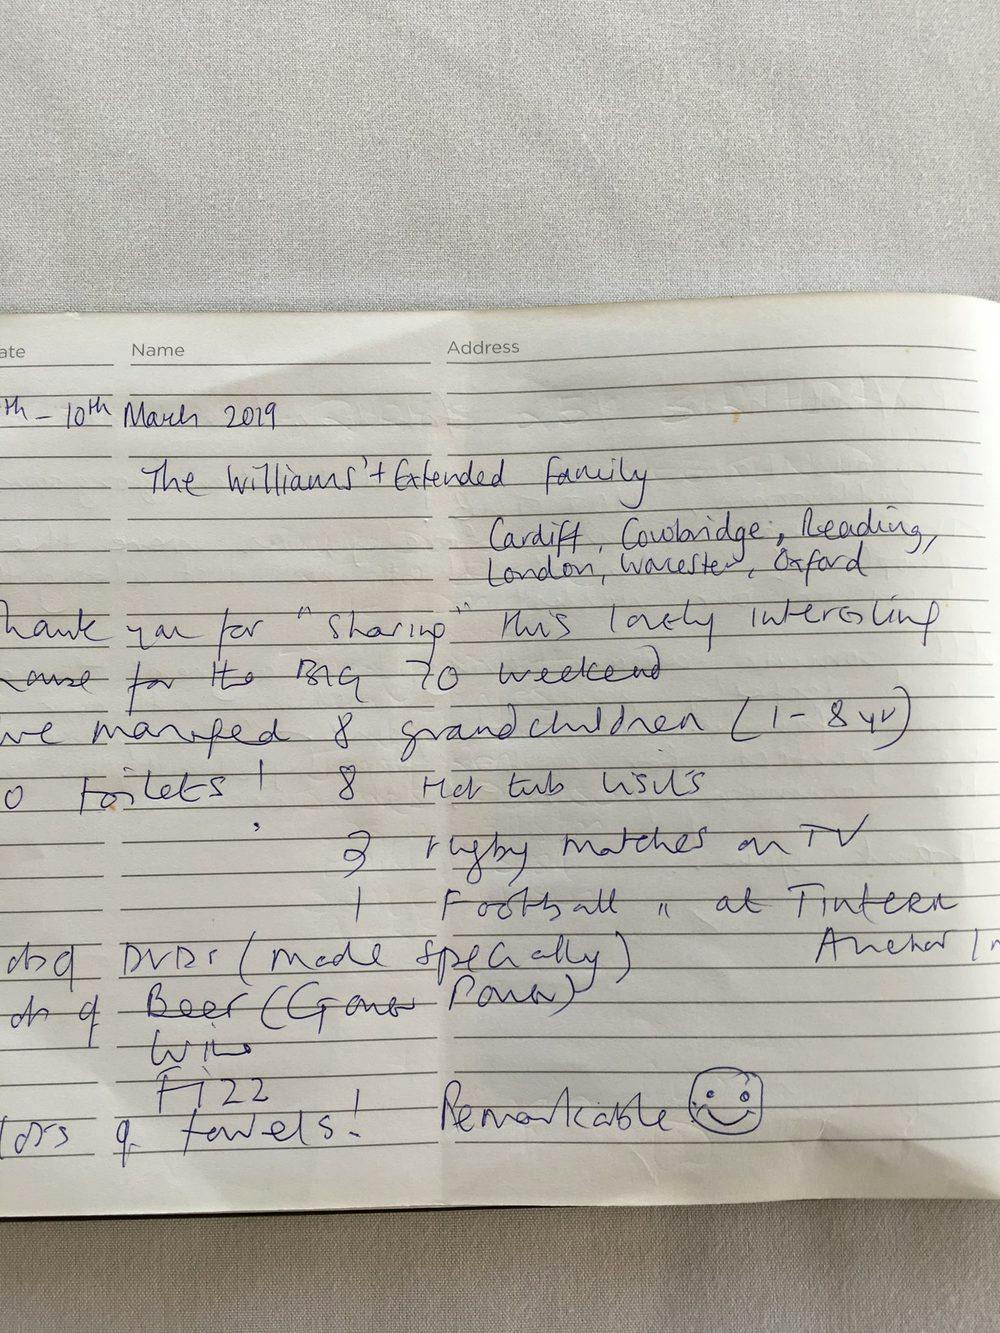 ate Name Address
th - 10th March 2019
The Williams' + Extended Family
Cardiff, Cowbridge, Reading,
London, Worcester, Oxford
hank you for "sharing" this lovely interesting
house for the BIG 70 weekend
we managed 8 grandchildren (1-8 yr)
0 toilets! 8 Hot tub visits
rugby matches on TV
1 Football " at Tintern
Anchor In
DVDs (made specially)
Beer (
Wine
Fizz
of towels! Remarkable